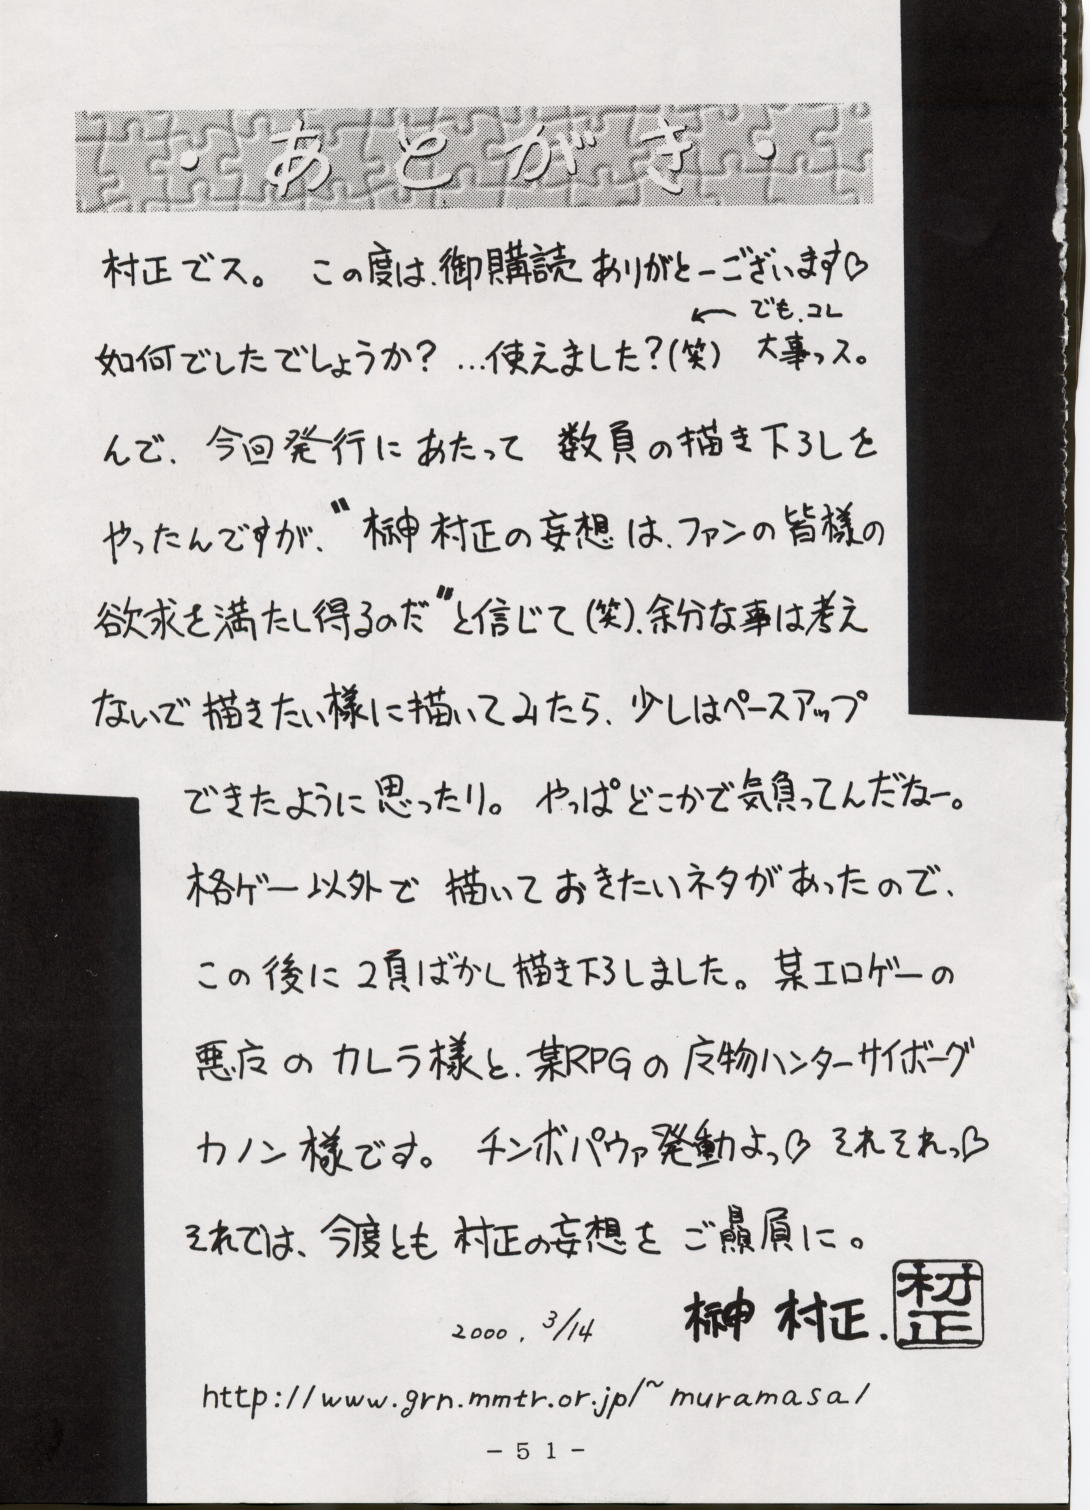 ・あとがき・
村正でス。 この度は、御購読ありがとーございます♡
如何でしたでしょうか? …使えました?(笑) ← でも、コレ
大事っス。
んで、今回発行にあたって 数頁の描き下ろしを
やったんですが、〝榊 村正の妄想は、ファンの皆様の
欲求を満たし得るのだ〟と信じて(笑)、余分な事は考え
ないで描きたい様に描いてみたら、少しはペースアップ
できたように思ったり。 やっぱどこかで気負ってんだなー。
格ゲー以外で 描いておきたいネタがあったので、
この後に2頁ばかし描き下ろしました。某エロゲーの
悪魔のカレラ様と、某RPGの魔物ハンターサイボーグ
カノン様です。 チンボパウァ発動よっ♡ それそれっ♡
それでは、今度とも 村正の妄想を ご贔屓に。
榊 村正.
村正
2000. 3/14
http://www.grn.mmtr.or.jp/~muramasa/
- 51 -